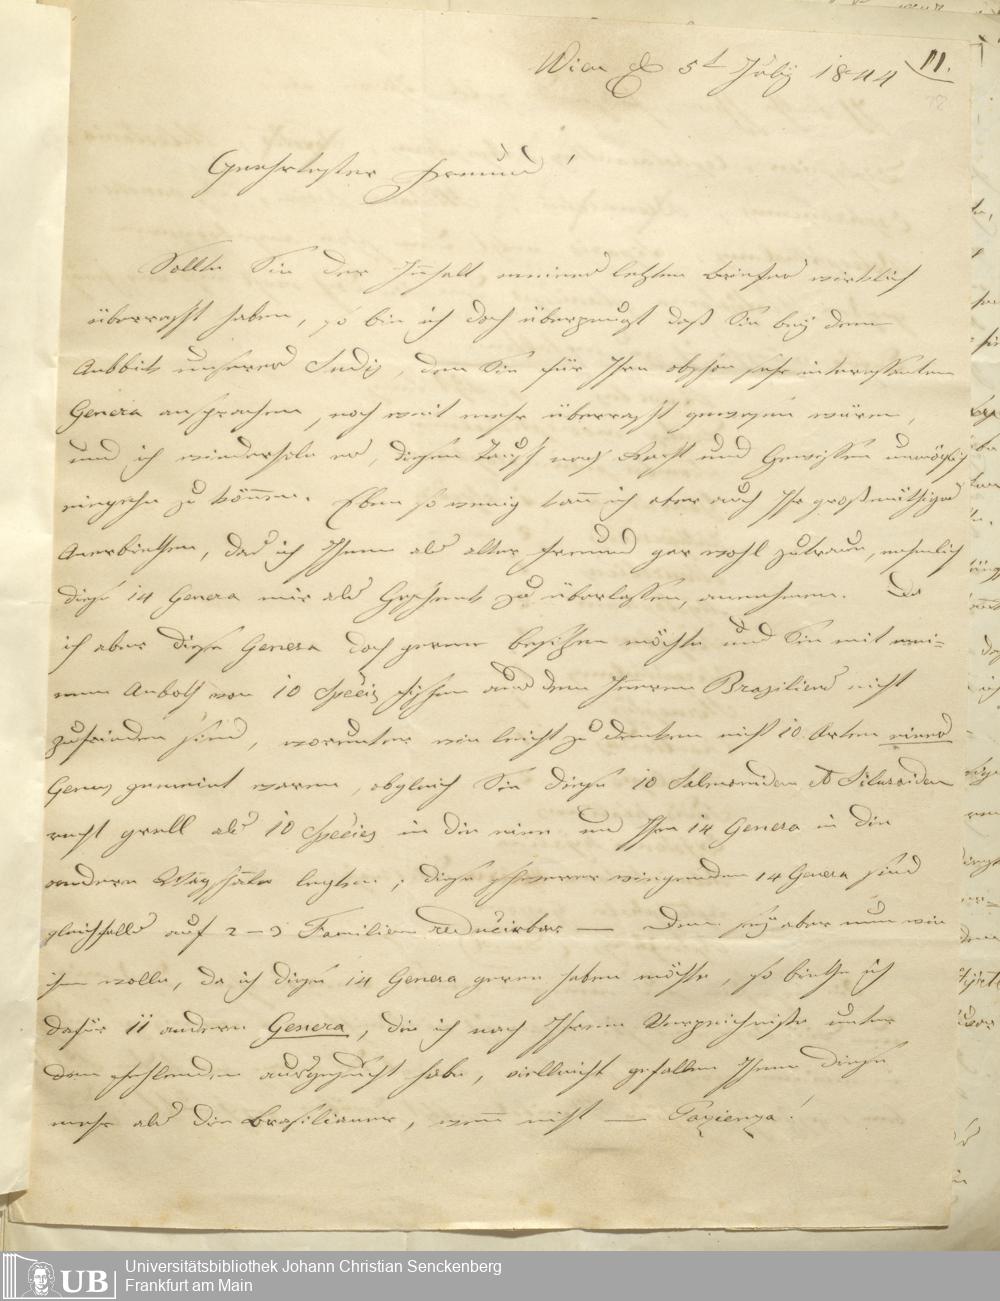 Wien d 5t July 1844
11.
Geehrtester Freund!
Sollte Sie der Inhalt meines letzten Briefes wirklich
überrascht haben, so bin ich doch überzeugt daß Sie bey dem
Anblick unseres Indiv, den Sie für Ihre obschon sehr interessanten
Genera ansprachen, noch weit mehr überrascht gewesen wären,
und ich wiederhole es, diesen Tausch nach Recht und Gewissen unmöglich
eingehn zu können. Eben so wenig kann ich aber auch Ihr großmüthiges
Anerbiethen, das ich Ihnen als alter Freund gar wohl zutraue, nehmlich
diese 14 Genera mir als Geschenk zu überlassen, annehmen. Da
ich aber diese Genera doch gerne besitzen möchte und Sie mit mei-
nem Anboth von 10 Species Fischen aus dem Inneren Brasiliens nicht
zufrieden sind, worunter wie leicht zu denken nicht 10 Arten eines
Genus gemeint waren, obgleich Sie diese 10 Salmoniden & Siluroiden
recht grell als 10 Species in die eine und Ihre 14 Genera in die
andere Wagschale legten; diese schwerer wiegenden 14 Genera sind
gleichfalls auf 2-3 Familien reducirbar — Dem sey aber nun wie
ihm wolle, da ich diese 14 Genera gerne haben möchte, so biethe ich
dafür 11 andere Genera, die ich nach Ihrem Verzeichnisse unter
den fehlenden ausgesucht habe, vielleicht gefallen Ihnen diese
mehr als die Brasilianer, wenn nicht — Pazienza!
Universitätsbibliothek Johann Christian Senckenberg
Frankfurt am Main
UB